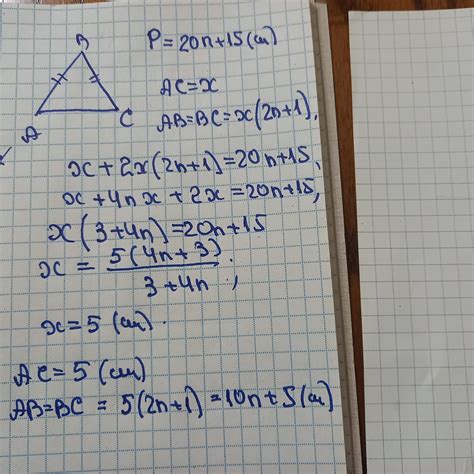 B
A
C
P = 20n+15 (см)
AC = x
AB=BC=x(2n+1),
x + 2x(2n+1)=20n+15,
x + 4nx + 2x = 20n+15,
x(3+4n)=20n+15
x = 5(4n+3) / 3+4n ;
x = 5 (см).
AC = 5 (см)
AB=BC = 5(2n+1) = 10n+5 (см)